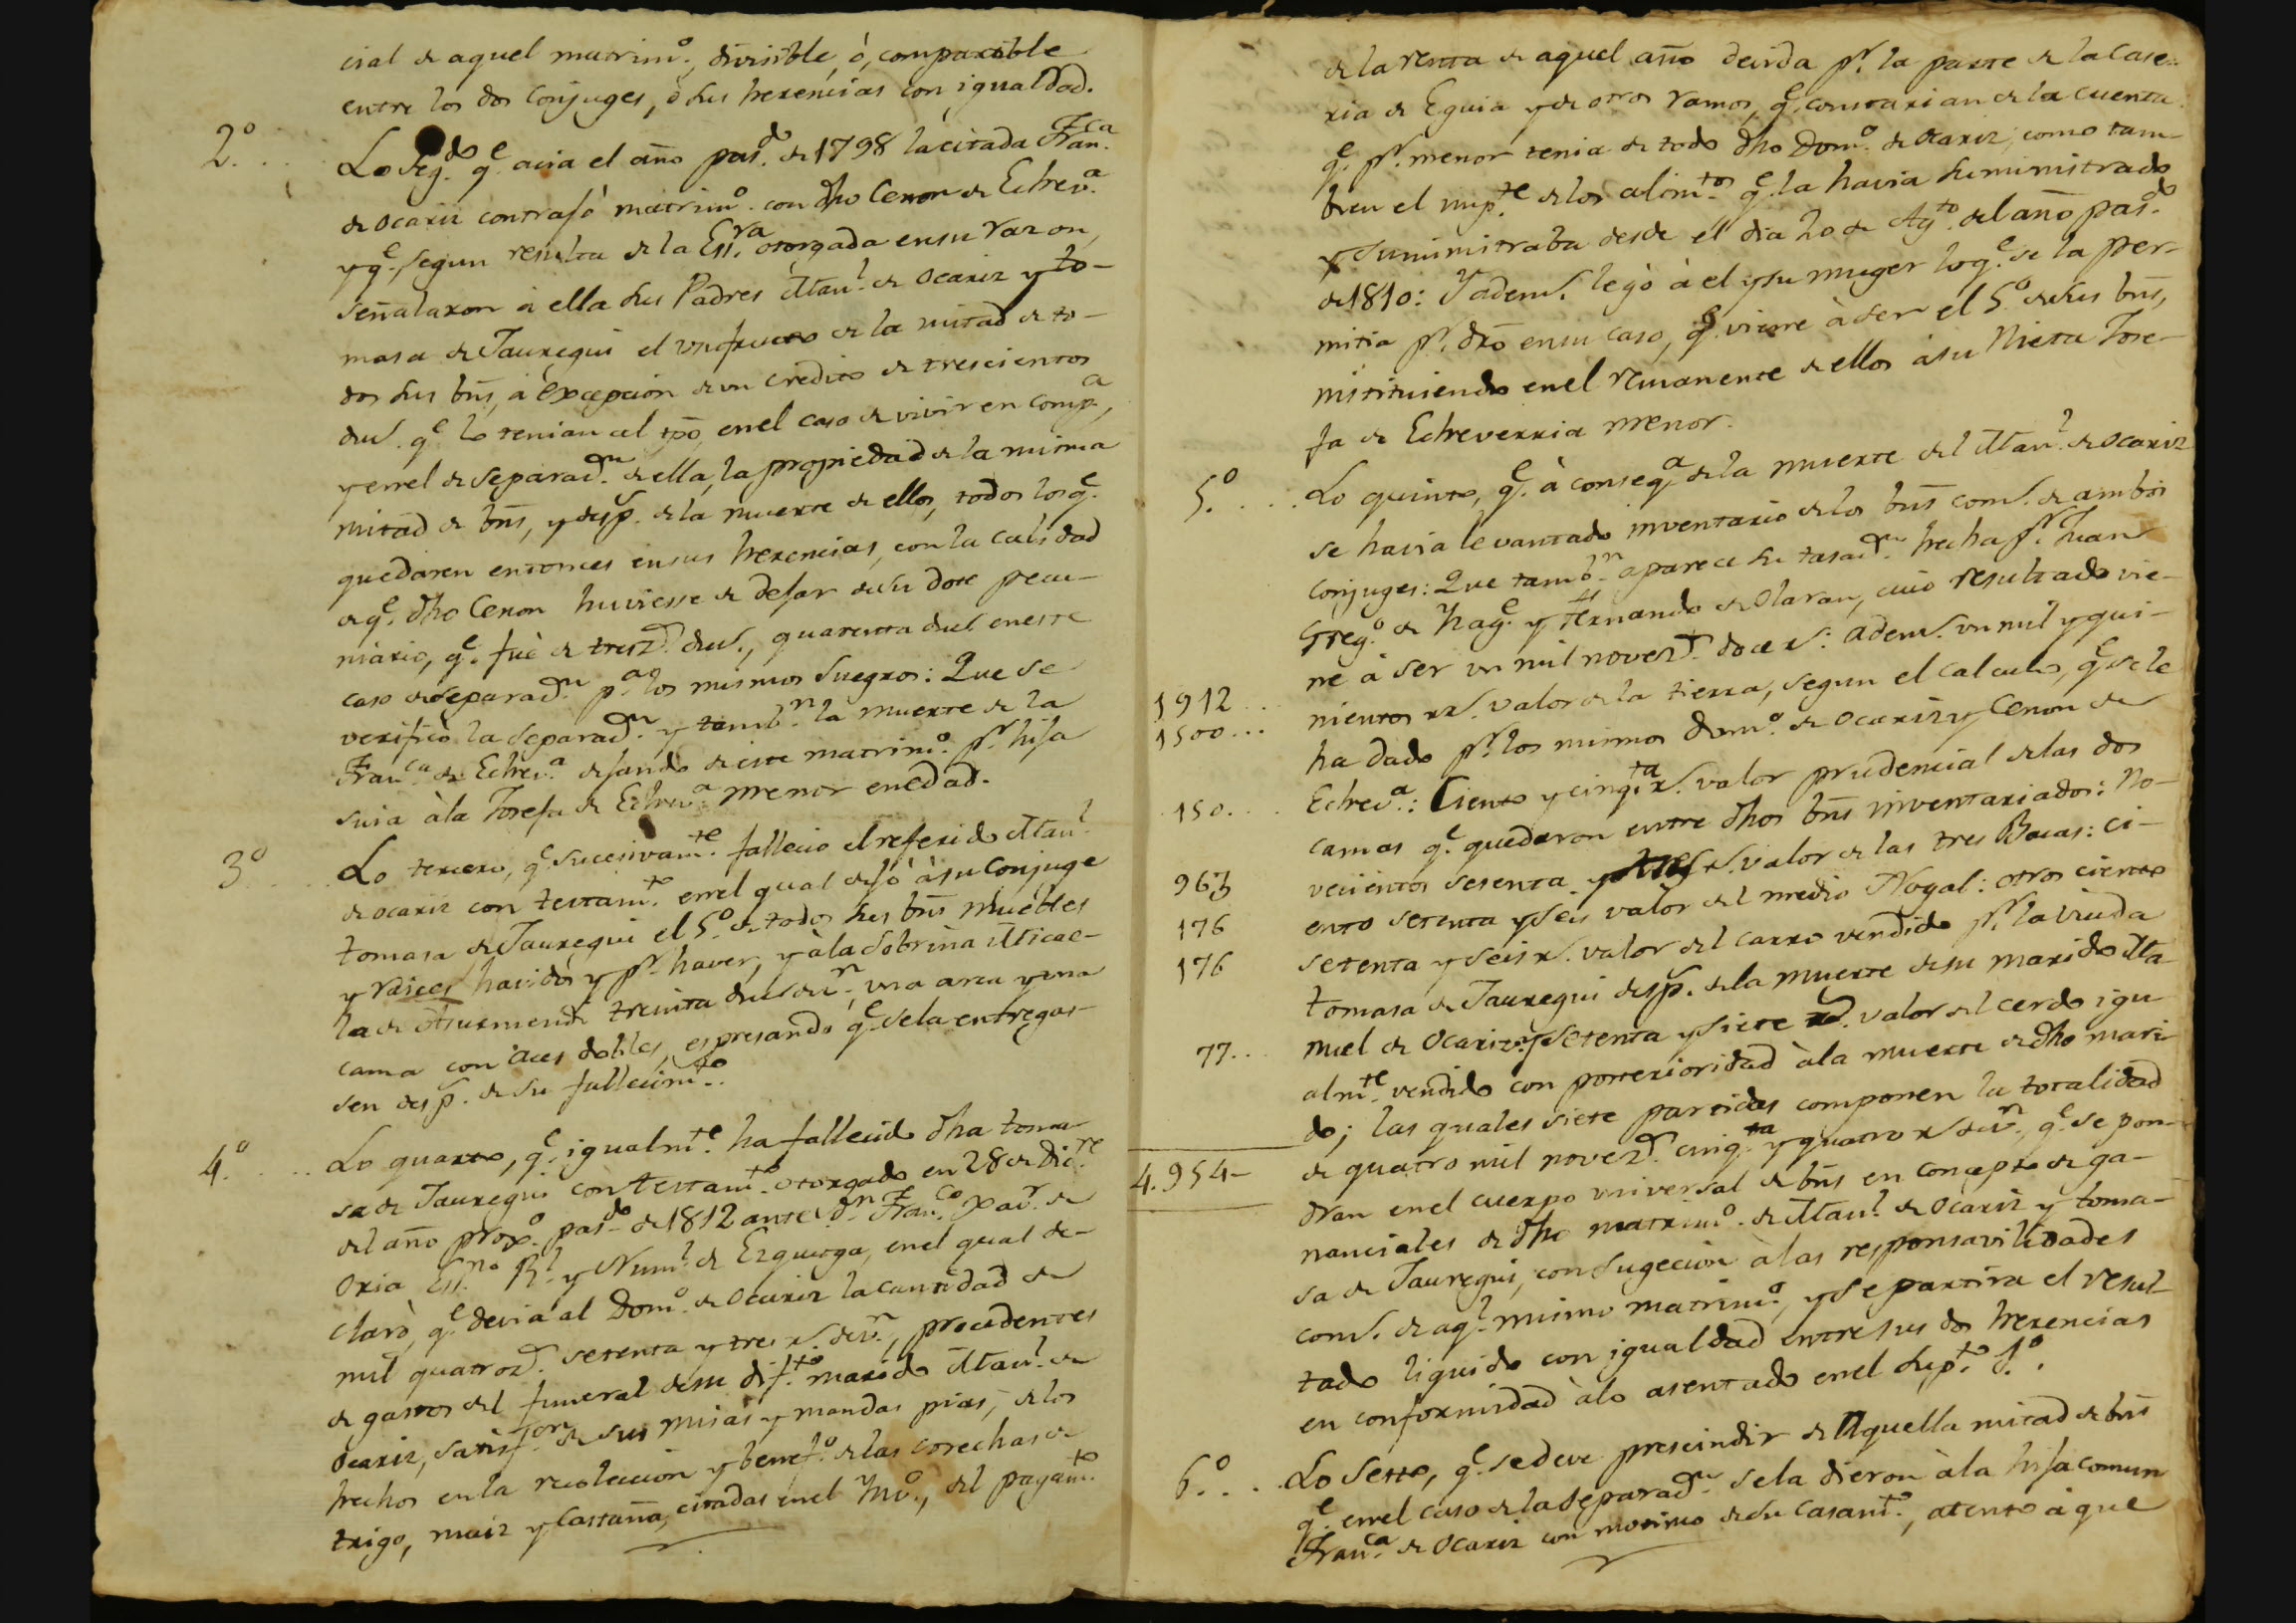 cial de aquel matrim.º, divisible, ó, compartible
entre los dos Conjuges, ó sus herencias con igualdad.
2.º . . Lo seg.do q.e acia el año pas.do de 1798 la citada Fran.ca
de Ocariz contrajó matrim.º con dho Cenon de Echev.a
y q.e segun resulta de la Ess.ra otorgada en su razon,
señalaron á ella sus Padres Man.l de Ocariz y to-
masa de Jauregui el usufructo de la mitad de to-
dos sus bns, á excepcion de un credito de trescientos
dus. q.e lo tenian al tpo, en el caso de vivir en comp.a,
y en el de separad.n de ella, la propiedad de la misma
mitad de bns, y desp.s de la muerte de ellos, todos los q.e
quedaren entonces en sus herencias, con la calidad
de q.e dho Cenon huviesse de dejar de su dote pecu-
niario, q.e fué de tresz.s dus., quarenta dus. en este
caso de separad.n p.a los mismos suegros: Que se
verificó la separad.n y tamb.n la muerte de la
Fran.ca de Echev.a dejando de este matrim.º p.r hija
suia á la Josefa de Echev.a menor en edad.
3.º . . Lo tercero, q.e sucesivam.te fallecio el referido Man.l
de Ocariz con testam.to en el qual dejó á su Conjuge
tomasa de Jauregui el 5.º de todos sus bns muebles
y raices havidos y p.r haver, y á la sobrina Micae-
la de Asurmendi treinta dus de v.n, una arca y una
cama con aces dobles, espresando q.e se la entregas-
sen desp.s de su fallecim.to.
4.º . . . Lo quarto, q.e igualm.te ha fallecido dha toma-
sa de Jauregui con testam.to otorgado en 28 de Dic.re
del año prox.º pas.do de 1812 ante d.n Fran.co Xav.r de
Oria Ess.no R.l y Num.l de Ezquioga, en el qual de-
claró, q.e devia al Dom.º de Ocariz la cantidad de
mil quatroz.s setenta y tres rs. de v.n, procedentes
de gastos del funeral de su dif.to marido Man.l de
Ocariz, satisf.on de sus misas y mandas pias, de los
hechos en la recoleccion y benef.º de las corechas de
trigo, maiz y Castaña, citadas en el Inv.º, del pagam.to
de la renta de aquel año devida p.r la parte de la Case-
ria de Eguia y de otros ramos, q.e constarian de la cuenta
q.e p.r menor tenia de todo dho Dom.º de Ocariz, como tam-
bien el imp.te de los alim.tos q.e la havia suministrado
y suministraba desde el dia 20 de Ag.to del año pas.do
de 1810: Y adem.s legó á el y su muger lo q.e se la per-
mitia p.r dro en su caso, q.e viene á ser el 5.º de sus bns,
instituiendo en el remanente de ellos á su Nieta Jose-
fa de Echeverria menor.
5.º . . . Lo quinto, q.e á conseq.a de la muerte del Man.l de Ocariz
se havia levantado inventario de los bns com.s de ambos
Conjuges: Que tamb.n aparece su tasad.n hecha p.r Juan
Greg.º de Yrag.e y Fernando de Olaran, cuio resultado vie-
1912 . . . ne á ser un mil novez.s doce rs: adem.s un mil y qui-
1500 . . . nientos rs. valor de la tierra, segun el calculo, q.e se le
ha dado p.r los mismos Dom.º de Ocariz y Cenon de
150 . . . Echev.a: Ciento y cinq.ta r.s valor prudencial de las dos
camas q.e quedaron entre dhos bns inventariados: No-
963 vecientos sesenta y tres rs. valor de las tres Bacas: Ci-
176 ento setenta y seis valor del medio Nogal: otros ciento
176 setenta y seis r.s valor del carro vendido p.r la viuda
tomasa de Jauregui desp.s de la muerte de su marido Ma-
77 . . nuel de Ocariz: y setenta y siete rs. valor del cerdo igu-
alm.te vendido con posterioridad á la muerte de dho mari-
do; las quales siete partidas componen la totalidad
4.954 - de quatro mil novez.s cinq.ta y quatro rs de v.n, q.e se pon-
dran en el cuerpo universal de bns en concepto de ga-
nanciales de dho matrim.º de Man.l de Ocariz y toma-
sa de Jauregui, con sugecion á las responsavilidades
com.s de aq.l mismo matrim.º, y se partira el resul-
tado liquido con igualdad entre sus dos herencias
en conformidad á lo asentado en el sup.to 1.º
6.º . . . Lo sesto, q.e se deve prescindir de aquella mitad de bns
q.e en el caso de la separad.n se la dieron á la hija comun
Fran.ca de Ocariz con motivo de su casam.to, atento á que